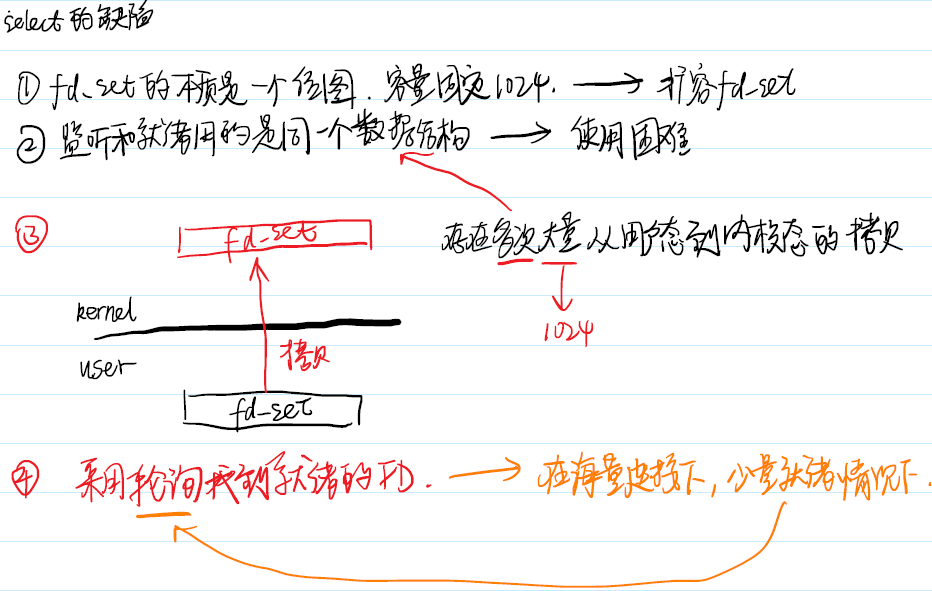 select的缺陷
① fd_set的本质是一个位图. 容量固定1024. → 扩容fd_set
② 监听和就绪用的是同一个数据结构 → 使用困难
③ fd_set 存在多次大量从用户态到内核态的拷贝
kernel
1024
拷贝
user
fd_set
④ 采用轮询找到就绪的FD. → 在海量连接下,少量就绪情况下.